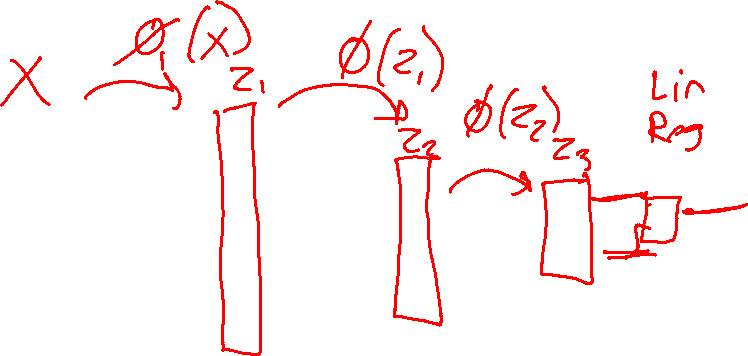 X
ϕ₁(X)
z₁
ϕ(z₁)
z₂
ϕ(z₂)
z₃
Lin
Reg